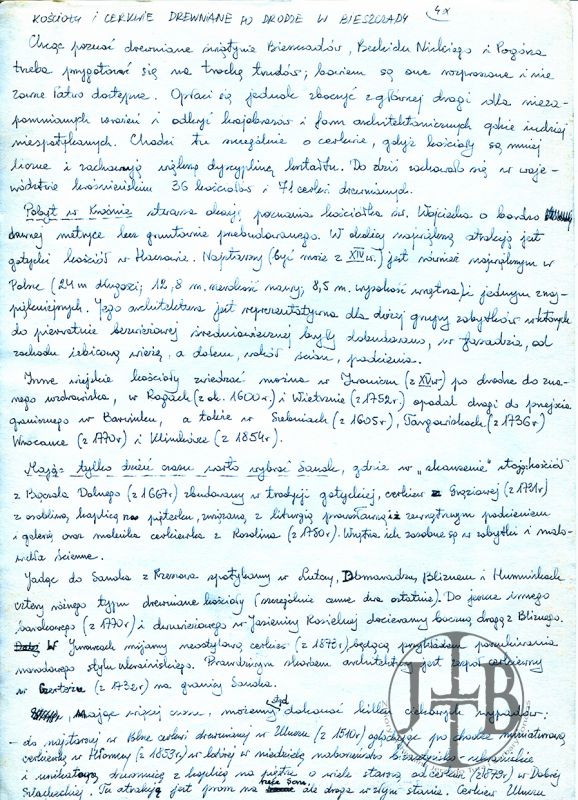 KOŚCIOŁY I CERKWIE DREWNIANE PO DRODZE W BIESZCZADY
4x
Chcąc poznać drewniane świątynie Bieszczadów, Beskidu Niskiego i Pogórza
trzeba przygotować się na trochę trudów; bowiem są one rozproszone i nie
zawsze łatwo dostępne. Opłaci się jednak zboczyć z głównej drogi dla nieza-
pomnianych wrażeń i odkryć krajobrazów i form architektonicznych gdzie indziej
niespotykanych. Chodzi tu szczególnie o cerkwie, gdyż kościoły są mniej
liczne i zachowują większą dyscyplinę kształtu. Do dziś zachowało się w woje-
wództwie krośnieńskim 36 kościołów i 71 cerkwi drewnianych.
Pobyt w Krośnie stwarza okazję poznania kościółka św. Wojciecha o bardzo
dawnej metryce lecz gruntownie przebudowanego. W okolicy największą atrakcją jest
gotycki kościół w Haczowie. Najstarszy (być może z XIV w.) jest również największym w
Polsce (24 m długości; 12,8 m. szerokość nawy; 8,5 m. wysokość wnętrza) i jednym z naj-
piękniejszych. Jego architektura jest reprezentatywna dla dużej grupy zabytków w których
do pierwotnie bezwieżowej średniowiecznej bryły dobudowano, w fasadzie, od
zachodu izbicową wieżę, a dołem, wokół ścian, podcienia.
Inne wiejskie kościoły zwiedzać można w Iwoniczu (z XV w) po drodze do zna-
nego uzdrowiska, w Rogach (z ok. 1600 r) i Wietrznie (z 1752 r) opodal drogi do przejścia
granicznego w Barwinku, a także w Siebniach (z 1605 r), Targowiskach (z 1736 r)
Wrocance (z 1770 r) i Klimkówce (z 1854 r).
Mając tylko dzień czasu warto wybrać Sanok, gdzie w „skansenie" stoją: kościół
z Bączala Dolnego (z 1667 r) zbudowany w tradycji gotyckiej, cerkiew z Grąziowej (z 1731 r)
z osobliwą kaplicą na pięterku, związaną z liturgią prawosławną i z zewnętrznym podcieniem
i galerią oraz maleńka cerkiewka z Rosolina (z 1750 r). Wnętrza ich zasobne są w zabytki i malo-
widła ścienne.
Jadąc do Sanoka z Rzeszowa spotykamy w Lutczy, Domaradzu, Bliznem i Humniskach
cztery różnego typu drewniane kościoły (szczególnie cenne dwa ostatnie). Do jeszcze innego
barokowego (z 1770 r) i dwuwieżowego w Jasienicy Rosielnej docieramy boczną drogą z Bliznego.
W Jurowcach mijamy neostylową cerkiew (z 1873 r), będącą przykładem poszukiwania
narodowego stylu ukraińskiego. Prawdziwym skarbem architektury jest zespół cerkiewny
w Czerteżu (z 1732 r) na granicy Sanoka.
Mając więcej czasu, możemy stąd dokonać kilku ciekawych wypadów:
- do najstarszej w Polsce cerkwi drewnianej w Uluczu (z 1510 r) oglądając po drodze miniaturową
cerkiewkę w Hłomczy (z 1859 r) w której w niedzielę nabożeństwo bizantyjsko - ukraińskie
i unikatową dzwonnicę z kaplicą na piętrze o wiele starszą od cerkwi (z 1879 r) w Dobrej
Szlacheckiej. Tu atrakcją jest prom na rzece San, ale droga w złym stanie. Cerkiew Uluczu
J+B